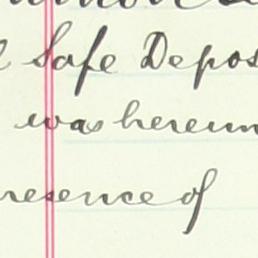 Safe Depos
was hereun
resence of